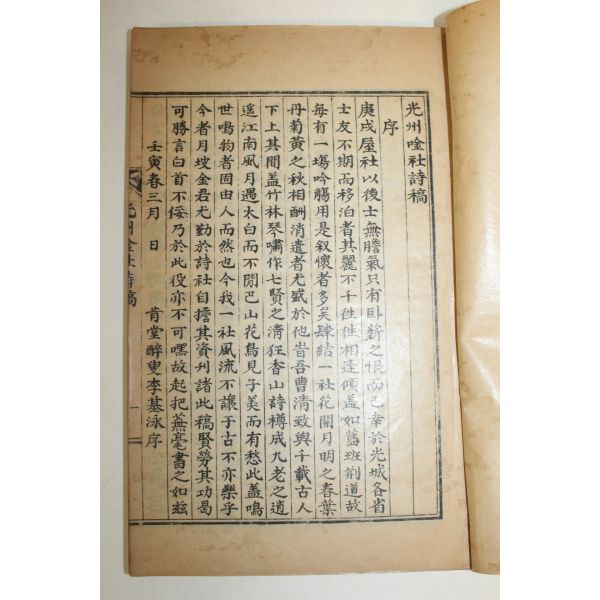 光州唫社詩稿
序
庚戌屋社以後士無膽氣只有臥薪之恨而已幸於光城各省
士友不期而移泊者其麗不千徃徃相逢傾盖如舊班荆道故
每有一場吟觴用是叙懷者多矣肆結一社花開月明之春葉
丹菊黃之秋相酬消遣者尤盛於他時吾曹淸致與千載古人
下上其間盖竹林琴嘯作七賢之淸狂香山詩樽成九老之逍
遙江南風月遇太白而不閒巴山花鳥見子美而有愁此盖鳴
世鳴物者固由人而然也今我一社風流不讓于古不亦樂乎
今者月坡金君尤勤於詩社自擔其資刋諸此稿賢勞其功曷
可勝言白首不侫乃於此役亦不可嘿故起把蕪毫書之如玆
壬寅春三月 日 肯堂醉叟李基泳序
光州唫社詩稿 一